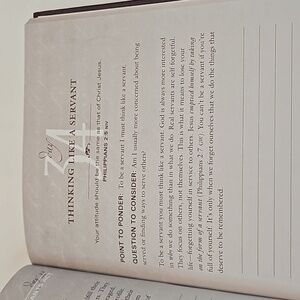 day
34
THINKING LIKE A SERVANT
Your attitude should be the same as that of Christ Jesus.
PHILIPPIANS 2:5
POINT TO PONDER: To be a servant I must think like a servant.
QUESTION TO CONSIDER: Am I usually more concerned about being
served or finding ways to serve others?
To be a servant you must think like a servant. God is always more interested
in why we do something than in what we do. Real servants are self-forgetful.
They focus on others, not themselves. This is what it means to lose your
life—forgetting yourself in service to others. Jesus emptied himself by taking
on the form of a servant (Philippians 2:7 GW). You can't be a servant if you're
full of yourself. It's only when we forget ourselves that we do the things that
deserve to be remembered.